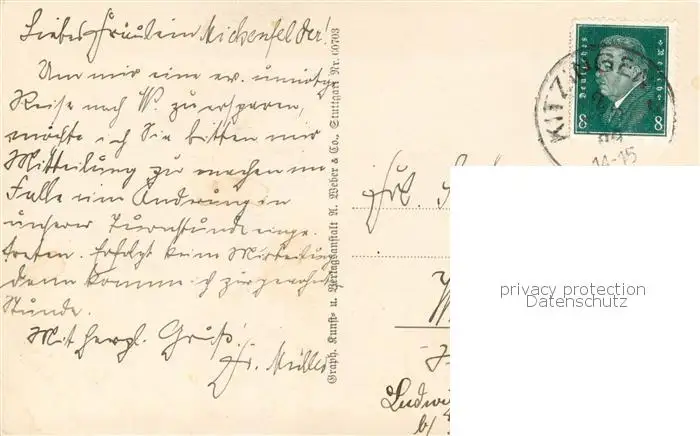 Liebes Fräulein Michenfelder!
Um mir eine ev. unnötige
Reise nach W. zu ersparen,
möchte ich Sie bitten mir
Mitteilung zu machen im
Falle eine Änderung in
unserer Turnstunde einge-
treten. Erfolgt keine Mitteilung
dann komme ich zur gewohnten
Stunde.
Mit herzl. Gruß!
Fr. Müller
Graph. Kunst- u. Verlagsanstalt A. Weber & Co., Stuttgart Nr.
Deutsches Reich
8 8
KITZINGEN
14-15
Frl.
W
Ludwi
b/
privacy protection
Datenschutz